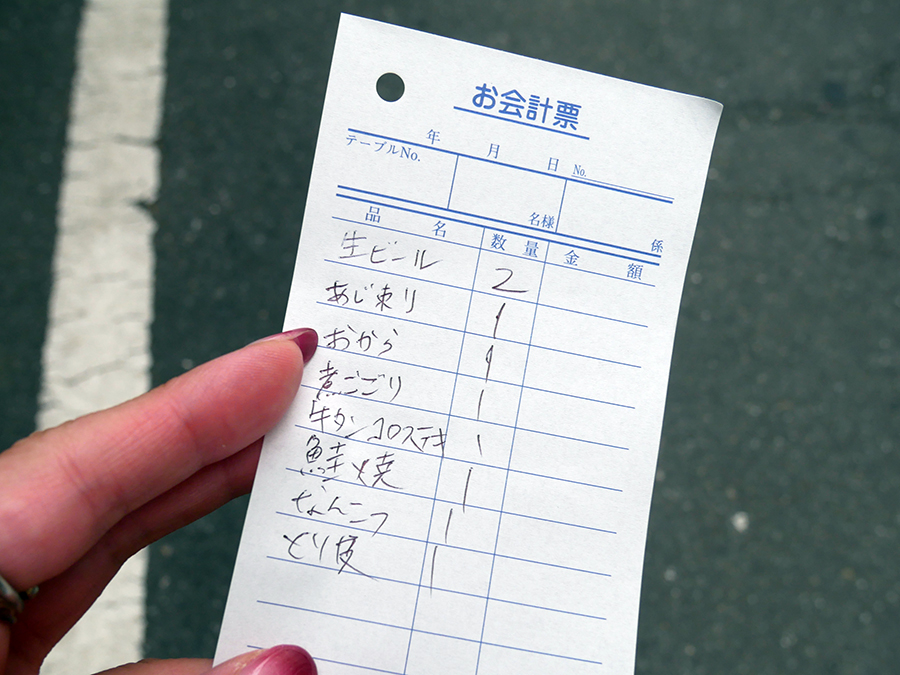 お会計票
年 月 日 No.
テーブルNo. 名様 係
品名 数量 金額
生ビール 2
あじ刺り 1
おから 1
煮こごり 1
牛タンコロステキ 1
鮭焼 1
なんこつ 1
とり皮 1